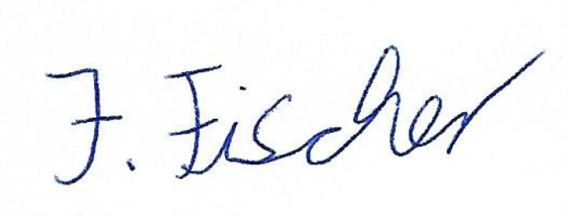 F. Fischer